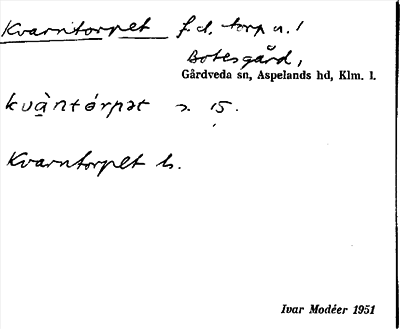 Kvarntorpet f.d. torp u. /
Botesgård,
Gårdveda sn, Aspelands hd, Klm. l.
kvà̱ntórpət s. 15.
Kvarntorpet b.
Ivar Modéer 1951